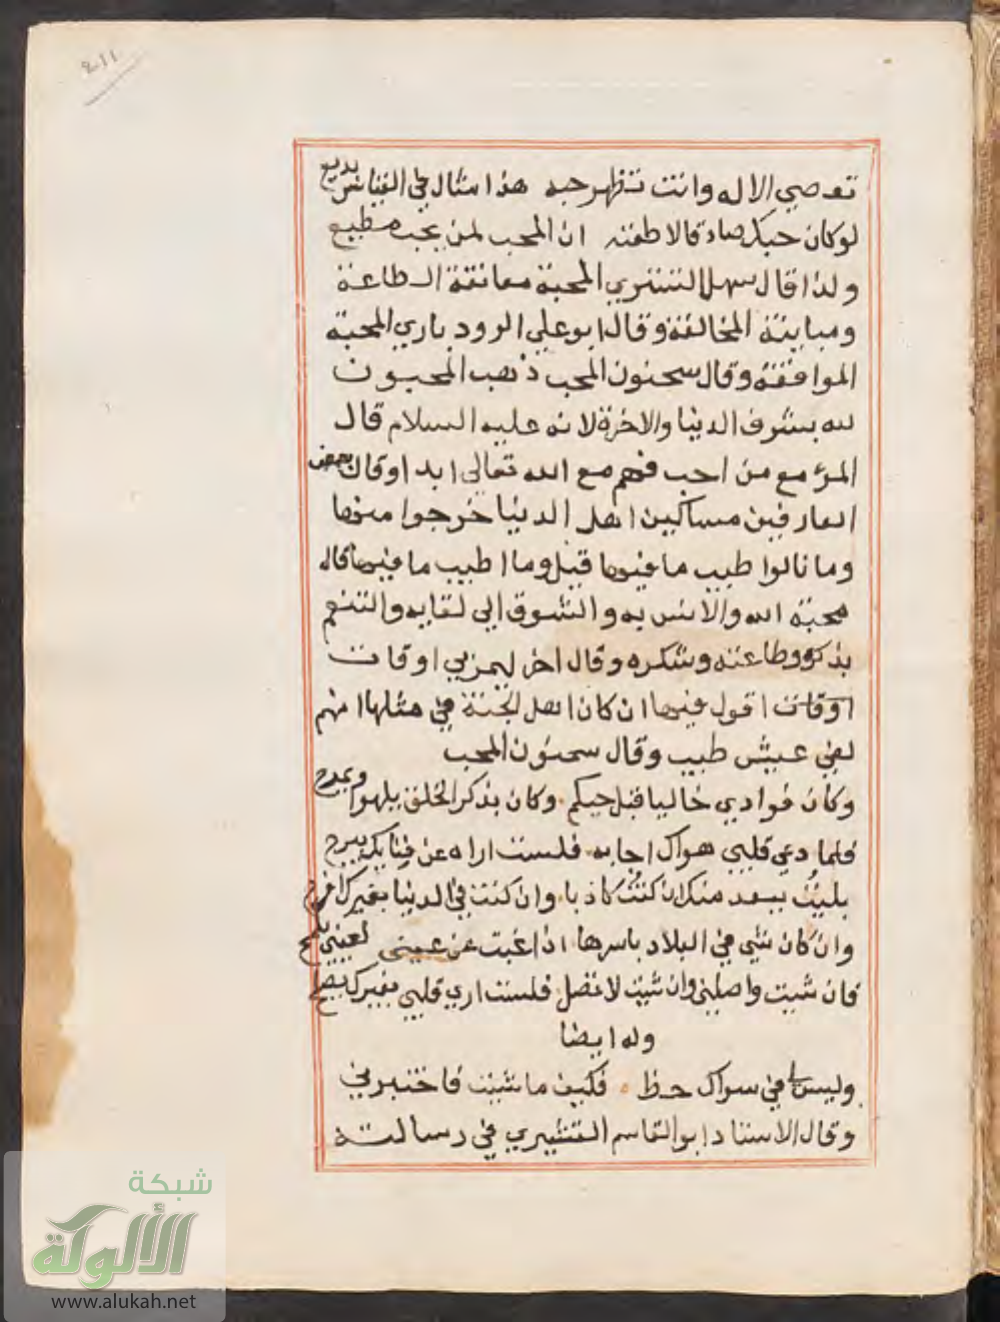 ٢١١
تعصي الاله وانت تظهر حبه هذا مثال في القياس بديع
لو كان حبك صادقا لاطعته ان المحب لمن يحب مطيع
ولذا قال سهل التستري المحبة معانقة الطاعة
ومباينة المخالفة وقال ابو علي الرودباري المحبة
الموافقة وقال سحنون المحب ذهب المحبون
لله بشرف الدنيا والاخرة لانه عليه السلام قال
المرؤ مع من احب فهم مع الله تعالى ابدا وقال بعض
العارفين مساكين اهل الدنيا خرجوا منها
وما نالوا طيب ما فيها قيل وما اطيب ما فيها قال
محبة الله والانس به والشوق الى لقايه والتنعم
بذكره وطاعته وشكره وقال اخر ليمر بي اوقات
اوقات اقول فيها ان كان اهل الجنة في مثلها انهم
لفي عيش طيب وقال سحنون المحب
وكان فوادي خاليا قبل حبكم وكان بذكر الخلق يلهوا ويمرح
فلما دعى قلبي هواك اجابه فلست اراه عن فنايك يبرح
بليت ببعد منك ان كنت كاذبا وان كنت في الدنيا بغيرك افرح
وان كان شي في البلاد باسرها اذا غبت عن عيني لعيني يلمح
فان شيت واصلني وان شيت لا تصل فلست ارى قلبي بغيرك يصلح
وله ايضا
وليس لي في سواك حظ فكيف ما شيت فاختبرني
وقال الاستاد ابو القاسم القشيري في رسالته
شبكة
الألوكة
www.alukah.net